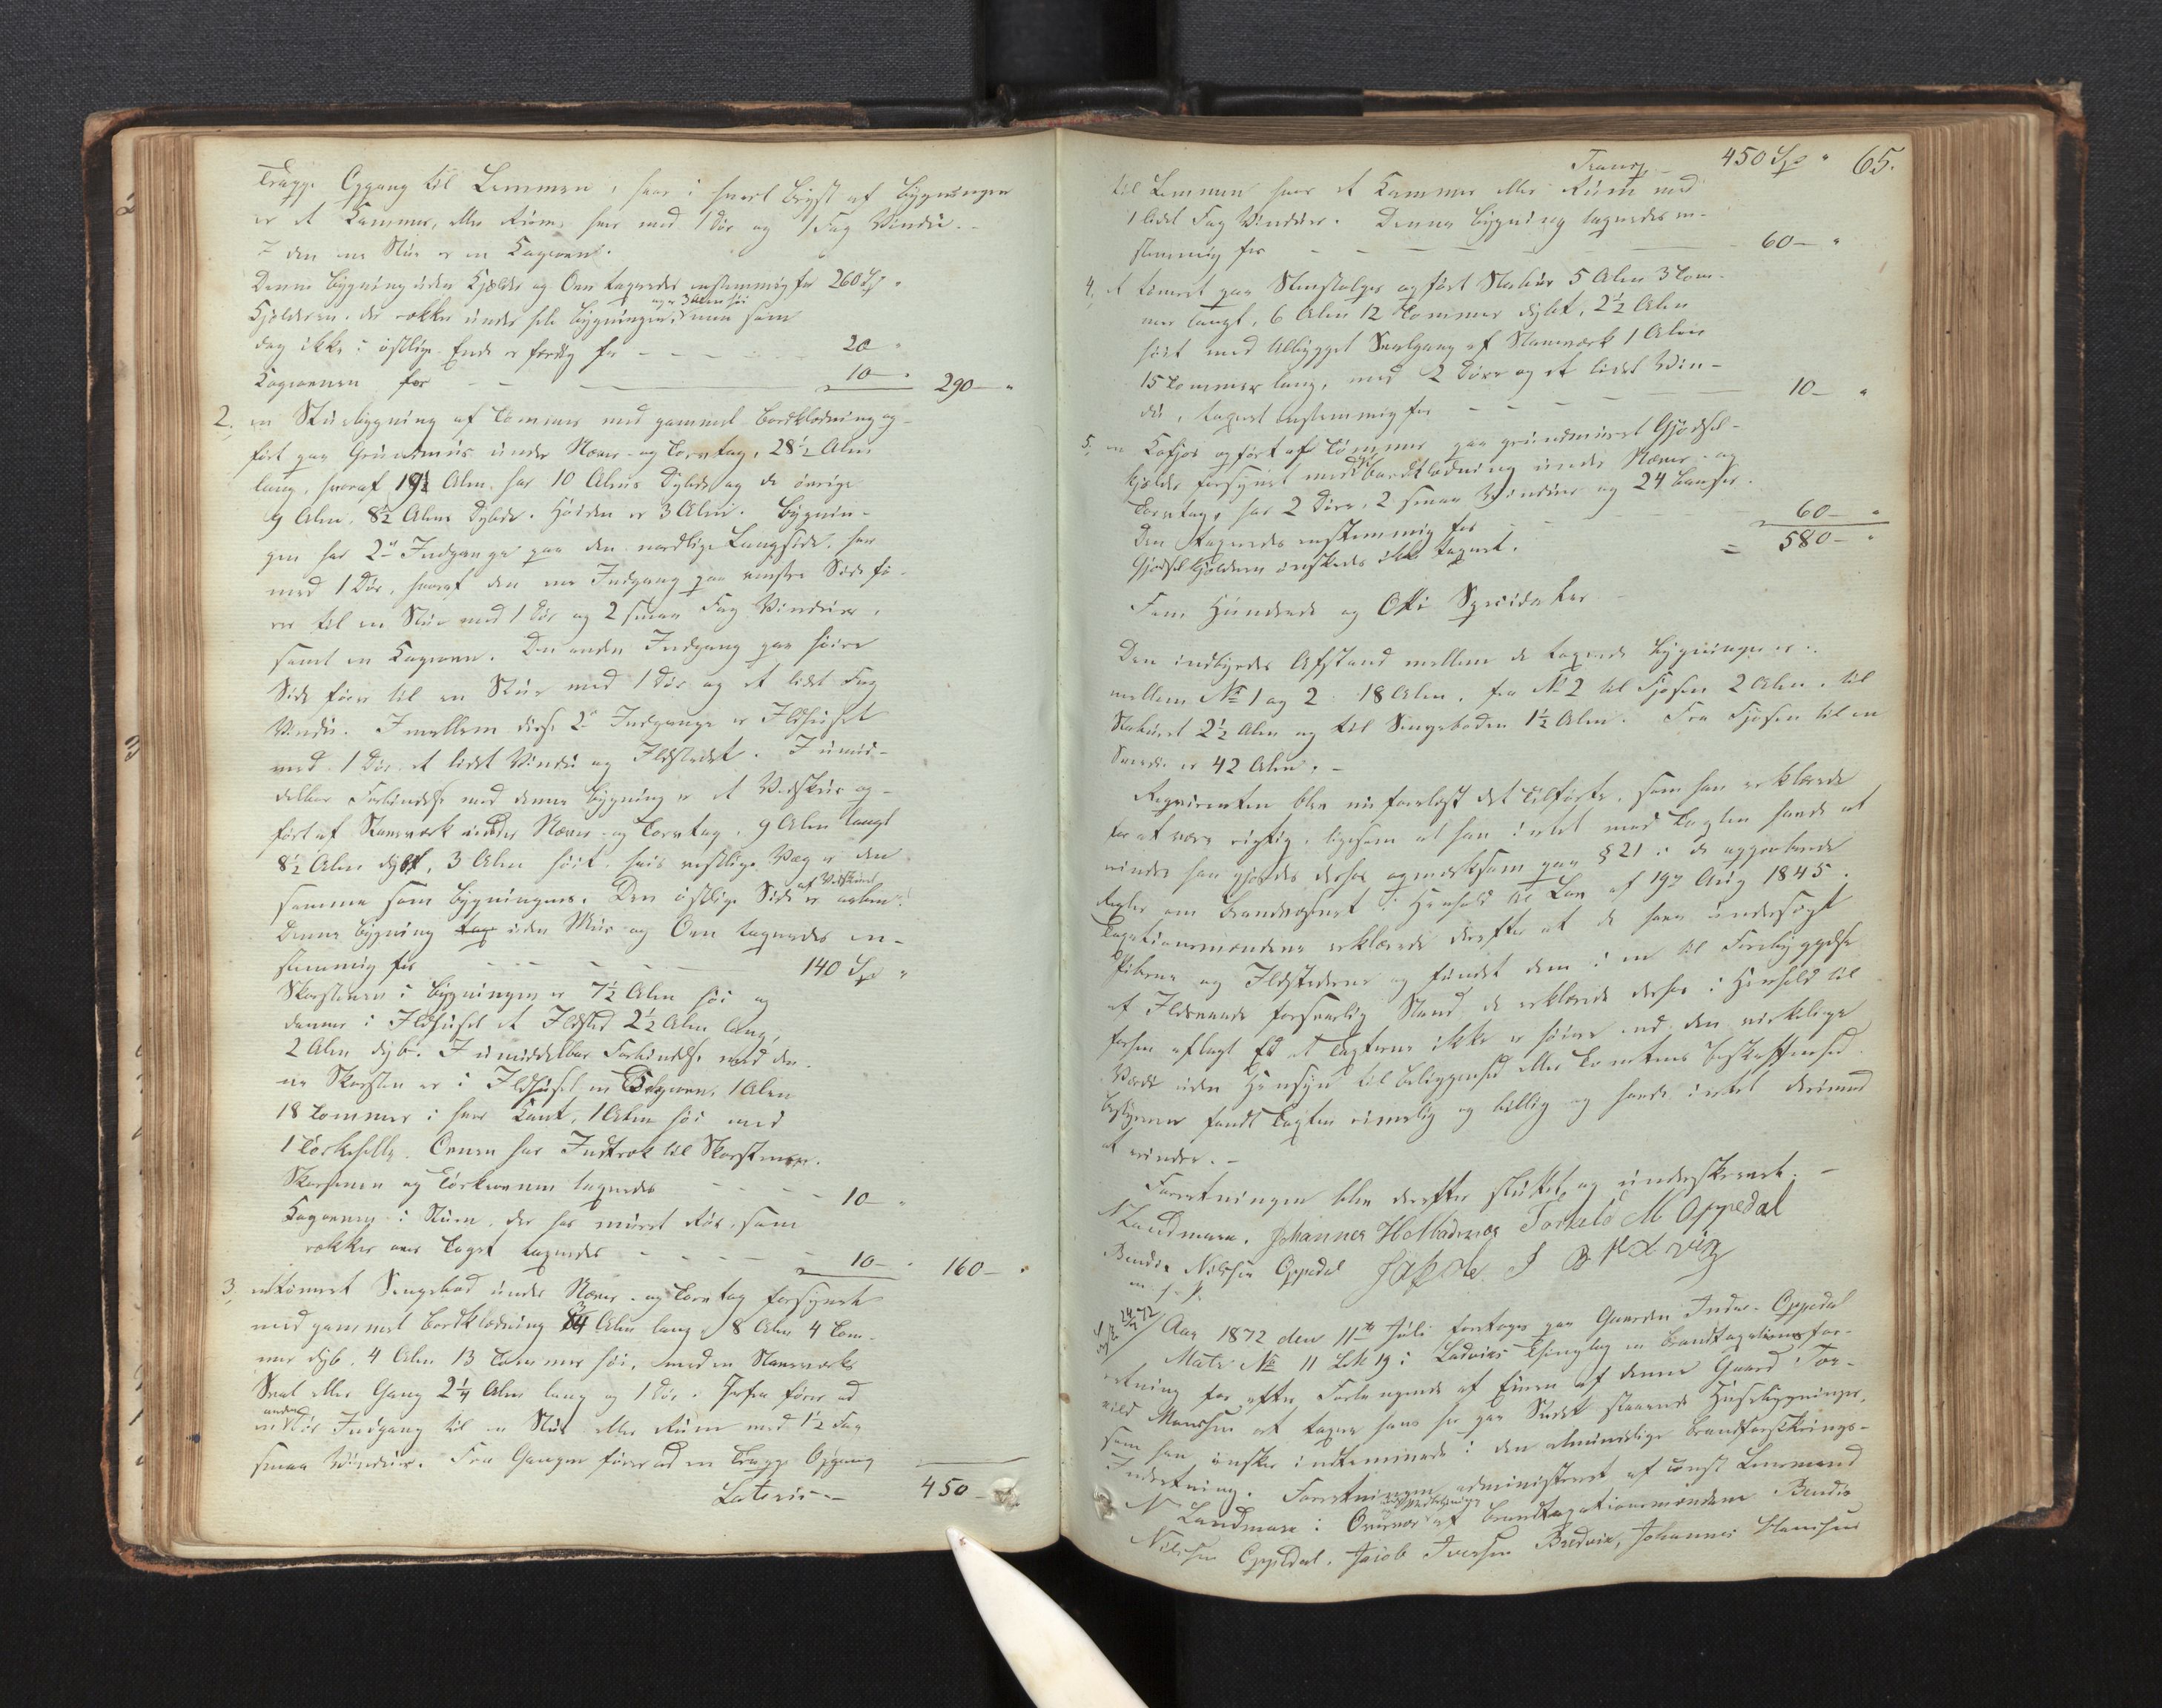 Trappe Opgang til Lemmen, hvor i hvert Bryst af Bygningen
er et Kammer, eller Rum, hver med 1 Dør og 1 Fag Vindu. -
I den ene Stue er en Kagovn.
Denne Bygning uden Kjelder og Ovn taxeredes enstemmig for 260 Spd "
og er 3 Alen høi
Kjelderen, der rækker under hele Bygningen, men som
dog ikke i østlige Ende er færdig for - - - 20 "
Kagovnen for - - 10 - " 290 - "
2, en Stuebygning af Tømmer med gammel Bordklædning op-
ført paa Grundmur under Næver- og Torvtag, 28½ Alen
lang, hvoraf 19½ Alen har 10 Alens Dybde og de øvrige
9 Alen, 8½ Alens Dybde. Høiden er 3 Alen. Bygnin-
gen har 2de Indgange paa den nordlige Langside, hver
med 1 Dør, hvoraf den ene Indgang paa venstre Side fø-
rer til en Stue med 1 Dør og 2 smaa Fag Vinduer,
samt en Kagovn. Den anden Indgang paa høire
Side fører til en Stue med 1 Dør og et lidet Fag
Vindu. Imellem disse 2de Indgange er Ildhuset
med 1 Dør, et lidet Vindu og Ildstedet. I umid-
delbar Forbindelse med denne Bygning er et Vedskur op-
ført af Stavværk under Næver- og Torvtag, 9 Alen langt
8½ Alen dybt, 3 Alen høit, hvis vestlige Væg er den
af Vedskuret
samme som Bygningens. Den østlige Side er aaben.
Denne Bygning tax uden Mur og Ovn taxeredes en-
stemmig for - - - - - 140 Spd "
Skorstenen i Bygningen er 7½ Alen høi og
danner i Ildhuset et Ildsted 2½ Alen lang,
2 Alen dyb. I umiddelbar Forbindelse med den-
ne Skorsten er i Ildhuset en Bagerovn, 1 Alen
18 Tommer i hver Kant, 1 Alen høi med
1 Tørkehelle. Ovnen har Indtræk til Skorstenen.
Skorstenen og Tørkeovnen taxeredes - - - - 10 - "
Kagovnen i Stuen, der har muret Rør, som
rækker over Taget taxeredes - - - 10 - " 160 - "
3, en tømret Sengebod under Næver- og Torvtag forsynet
med gammel Bordklædning Alen lang, 8 Alen 4 Tom-
mer dyb, 4 Alen 13 Tommer høi, med en Stavværks
Sval eller Gang 2¼ Alen lang og 1 Dør. Herfra fører ad
anden
en Dør Indgang til en Stue eller Rum med 1½ Fag
smaa Vinduer. Fra Gangen fører ad en Trappe Opgang
Lateris - 450 -
Transp 450 Spd " 65.
til Lemmen hvor et Kammer eller Rum med
1 lidet Fag Vinduer. Denne Bygning taxeredes en-
stemmig for - - - - 60 - "
4, et tømret paa Stenstolper opført Stabur 5 Alen 3 Tom-
mer langt, 6 Alen 12 Tommer dybt, 2½ Alen
høit med tilbygget Svalgang af Stavværk 1 Alen
15 Tommer lang, med 2 Døre og et lidet Vin-
du, taxert enstemmig for - - - - 10 - "
5, en Kofjøs opført af Tømmer paa grundmuret Gjødsel-
kjelder forsynet med Bordklædning under Næver- og
Torvtag, har 2 Døre, 2 smaa Vinduer og 24 Baaser.
Den taxeredes enstemmig for - - - 60 - "
Gjødselkjelderen ønskedes ikke taxert. = 580 - "
Fem Hundrede og Otti Speciedaler
Den indbyrdes Afstand mellem de taxerede Bygninger er:
mellem No 1 og 2 18 Alen, fra No 2 til Fjøsen 2 Alen, til
Staburet 2½ Alen og til Sengeboden 1½ Alen. Fra Fjøsen til en
Smedie er 42 Alen. -
Reqvirenten blev nu forelæst det Tilførte, som han erklærede
for at være rigtig, ligesom at han intet mod Taxten havde at
erindre han gjordes derhos opmærksom paa § 21 i de approberede
Regler om Brandvæsenet i Henhold til Lov af 19de Aug 1845.
Taxationsmændene erklærede derefter at de have undersøgt
Piberne og Ildstederne og fundet dem i en til Forebyggelse
af Ildsvaade forsvarlig Stand, de erklærede derhos i Henhold til
forhen aflagt Ed at Taxterne ikke er høiere end den virkelige
Værdi uden Hensyn til Beliggenhed eller Tomtens Beskaffenhed.
Bestyreren fandt Taxten rimelig og billig og havde intet derimod
at erindre. -
Forretningen blev derefter sluttet og underskrevet. -
N Landmark. Johannes H Torkild M Oppedal
Bendix Nilssen Oppedal Jakob I Bredvig
m. f. P.
Aar 1872 den 11te Juli foretoges paa Gaarden Indre-Oppedal
Matr No 11 Lb 19 i Ladviks Thinglag en Brandtaxationsfor-
retning for efter Forlangende af Eieren af denne Gaard Tor-
kild Monssen at taxere hans her paa Stedet staaende Huusebygninger,
som han ønsker indlemmede i den almindelige Brandforsikrings-
Indretning. Forretningen administreret af const Lensmand
N Landmark i Overvær af Brandtaxationsmændene Bendix
Nilssen Oppedal, Jacob Iversen Bredvik, Johannes Hanssen